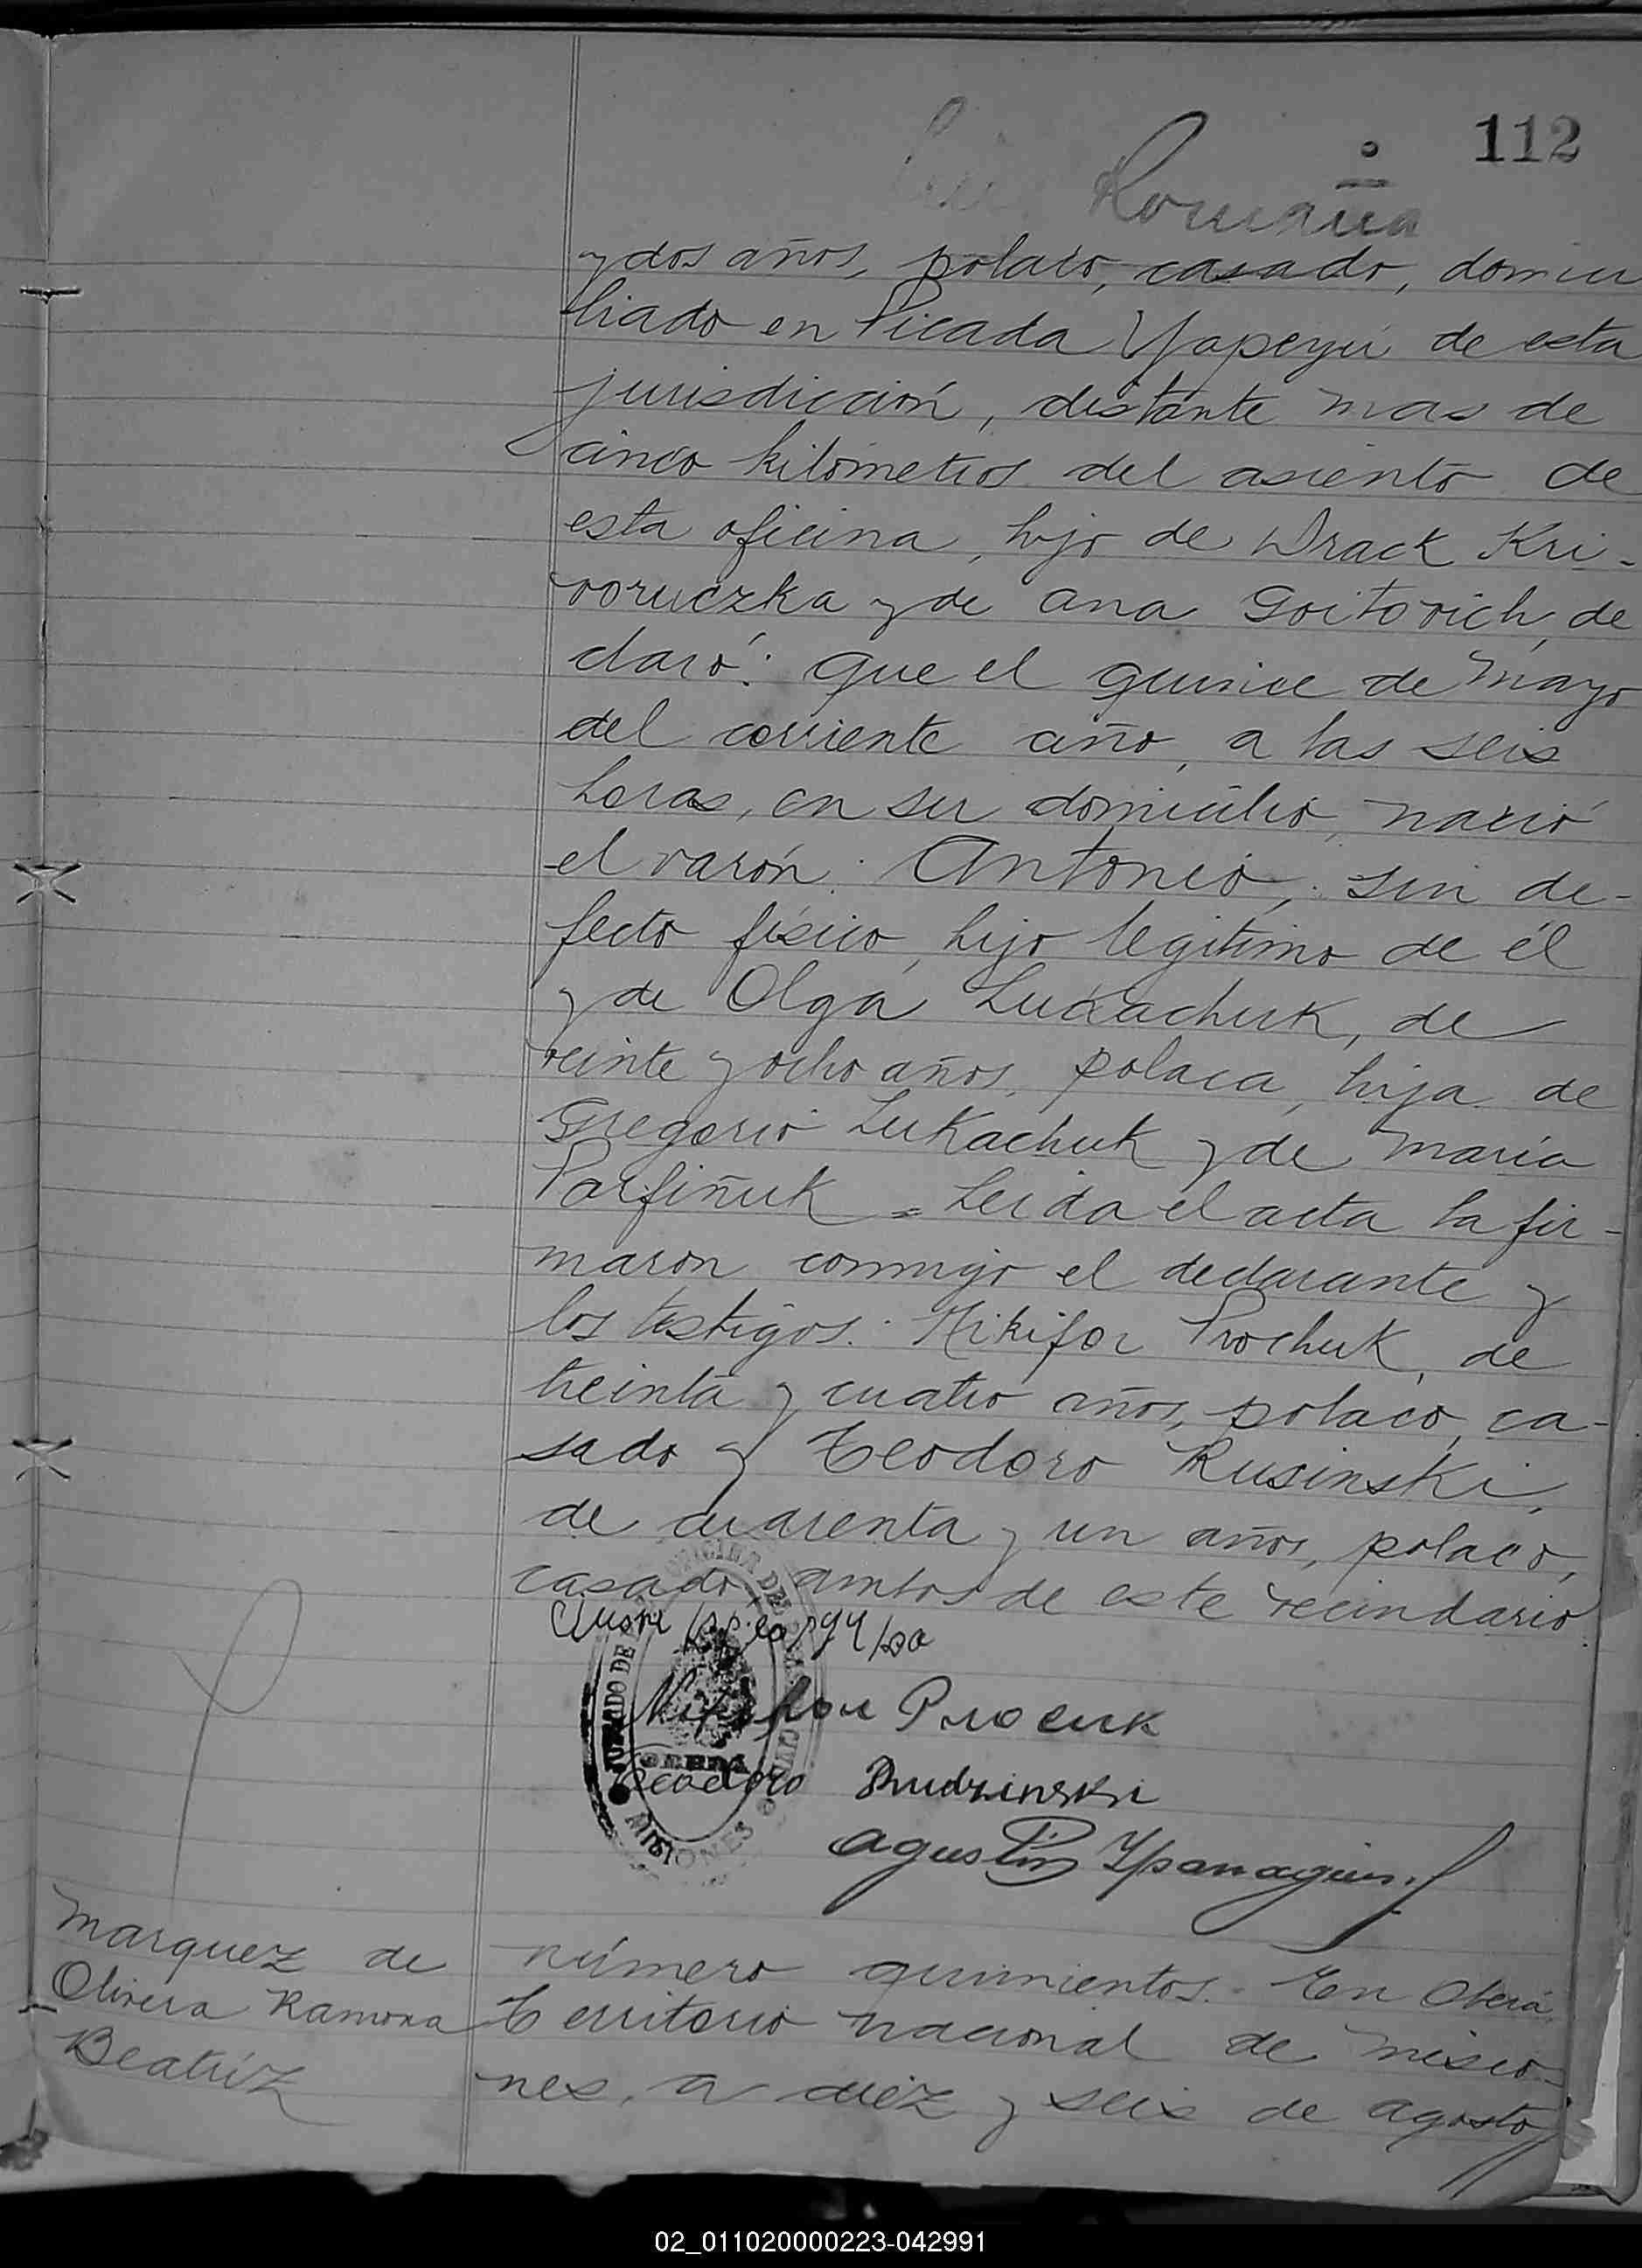 112
Romaña
y dos años, polaco, casado, domici
liado en Picada Yapeyú de esta
jurisdicción, distante mas de
cinco kilómetros del asiento de
esta oficina, hijo de Wrack Kri-
voruczka y de Ana Goitovich, de
claró: Que el quince de Mayo
del corriente año, a las seis
horas, en su domicilio, nació
el varón: Antonio, sin de-
fecto físico, hijo legítimo de él
y de Olga Lukachuk, de
veinte y ocho años, polaca, hija de
Gregorio Lukachuk y de María
Parfiñuk = Leida el acta la fir-
maron conmigo el declarante y
los testigos: Nikifor Prochuk, de
treinta y cuatro años, polaco, ca-
sado y Teodoro Rusinski,
de cuarenta y un años, polaco,
casado, ambos de este vecindario.
JUZGADO DE
MISIONES
OBERÁ
Procuk
Teodoro Rudzinski
Agustin
Marquez de
Olivera Ramona
Beatríz
número quinientos.- En Oberá,
Territorio Nacional de Misio-
nes, a diez y seis de agosto
02_011020000223-042991